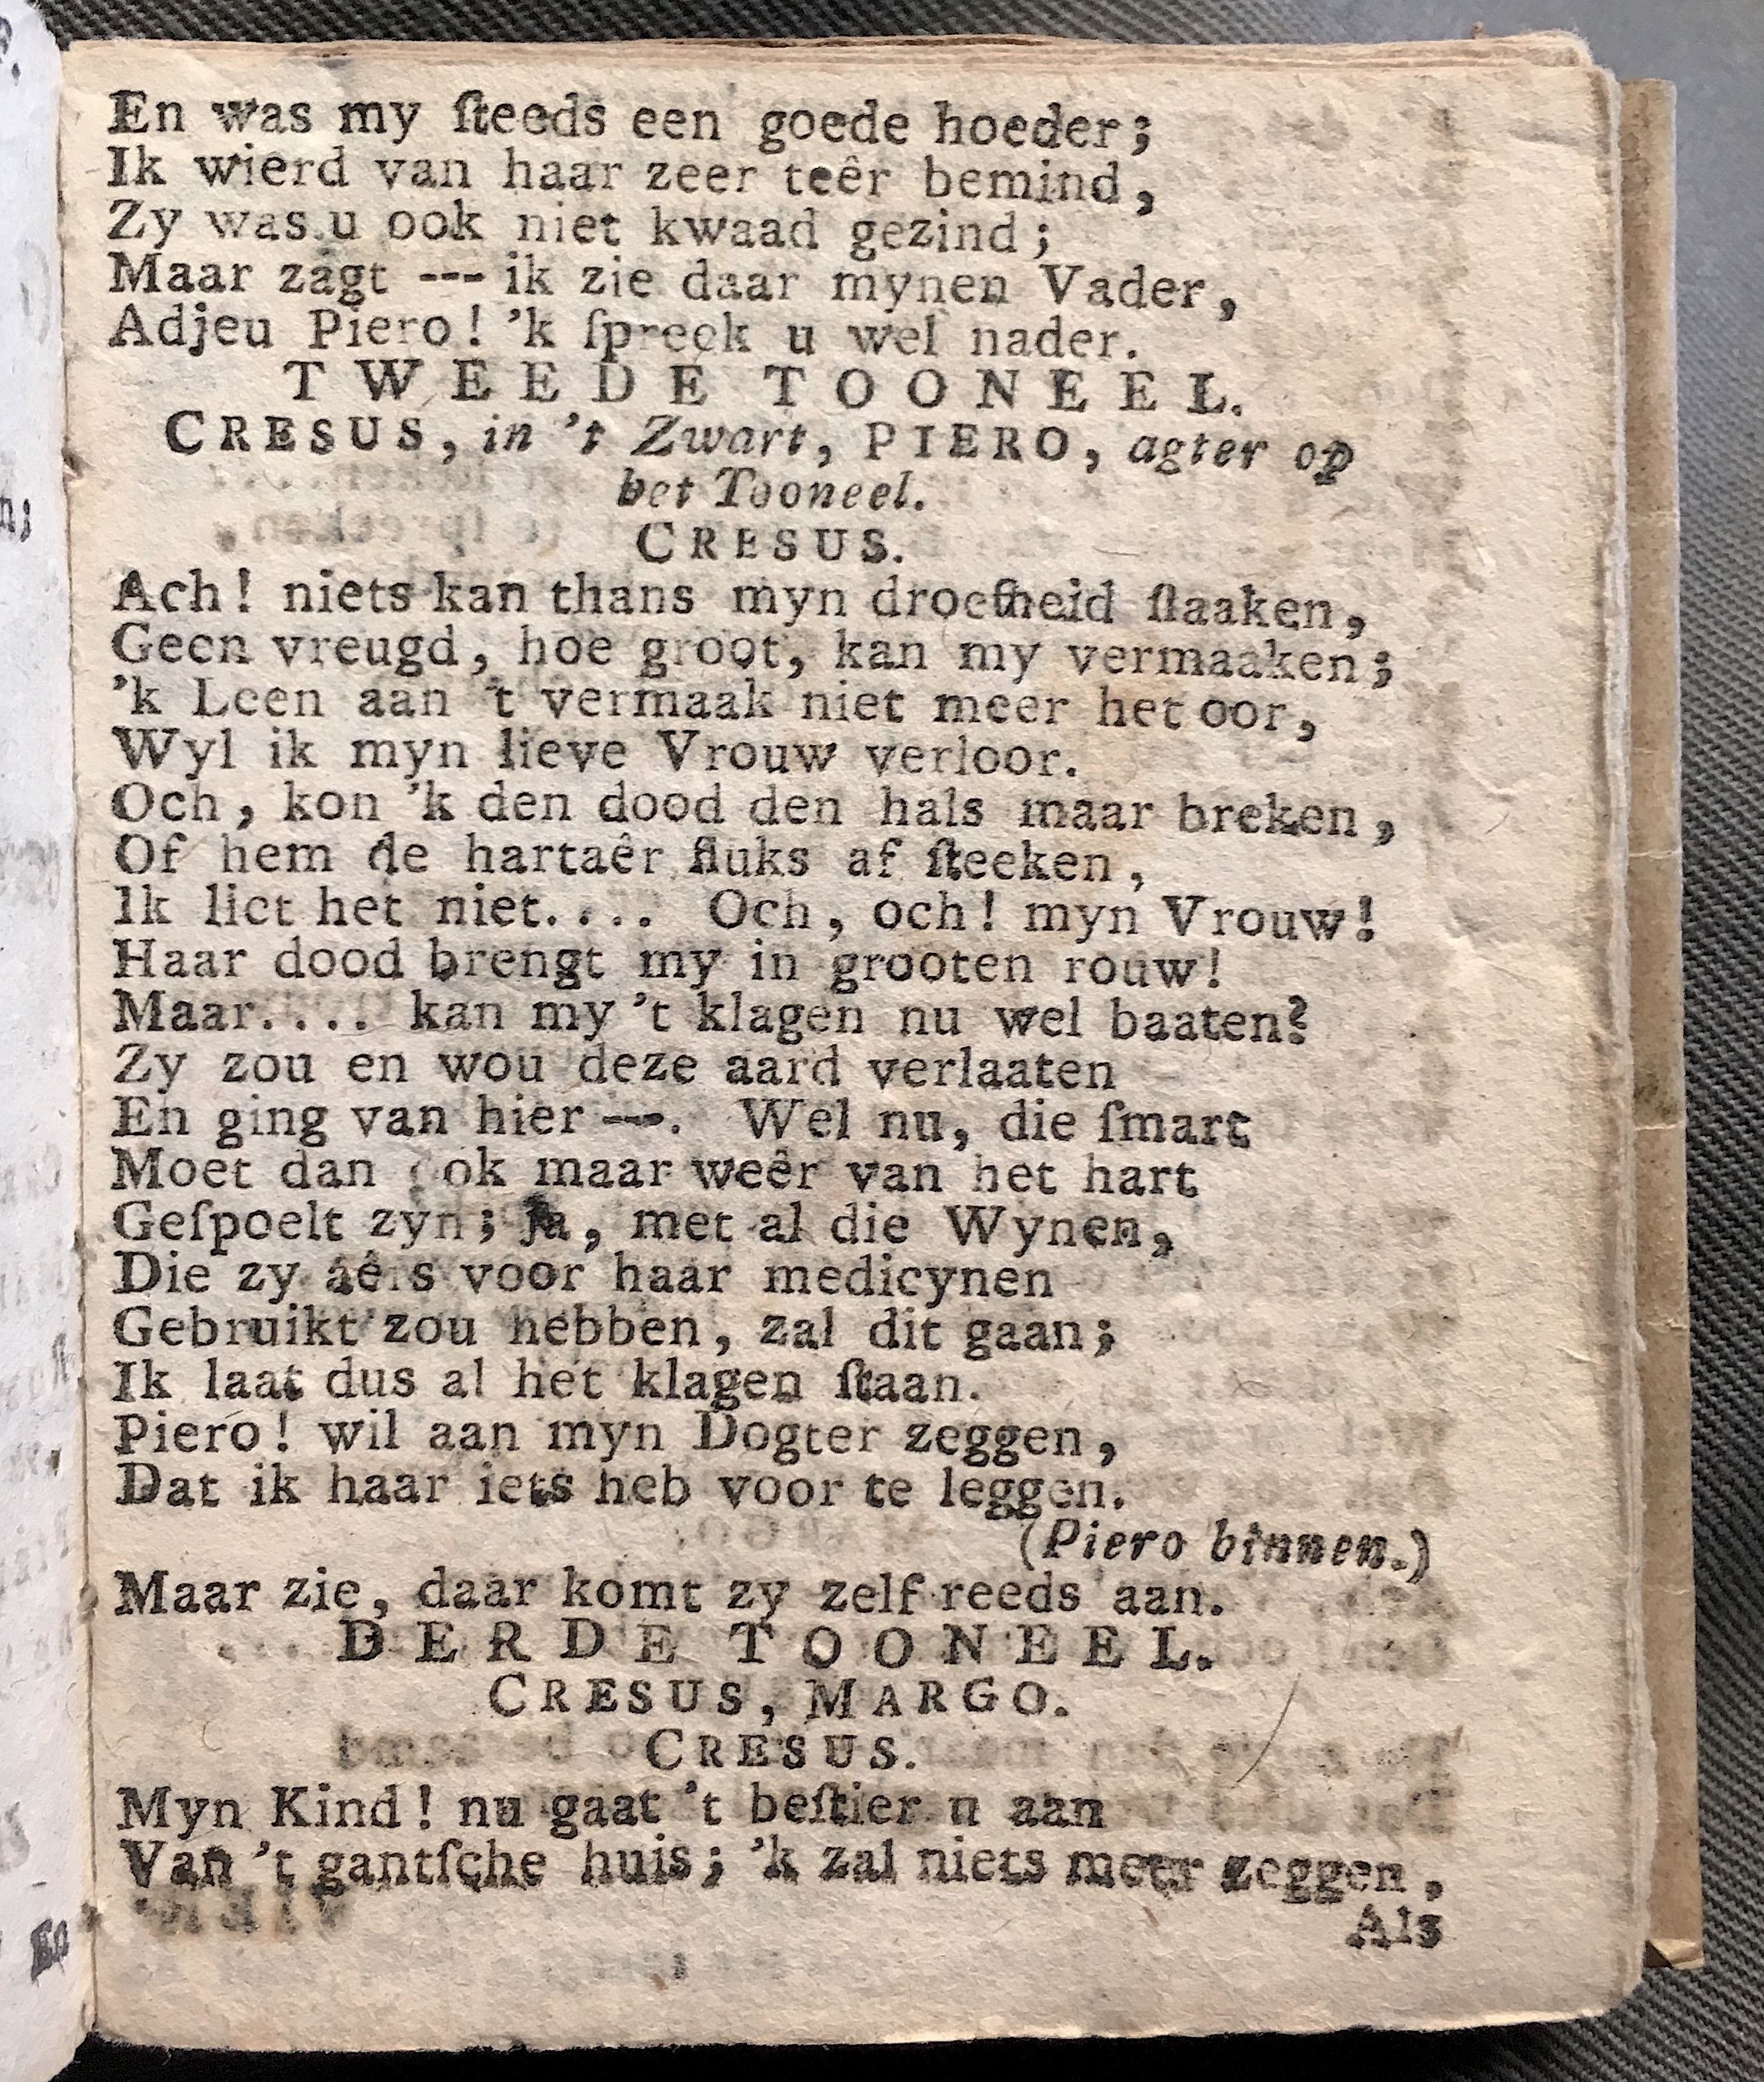 En was my ſteeds een goede hoeder;
Ik wierd van haar zeer teêr bemind,
Zy was u ook niet kwaad gezind;
Maar zagt --- ik zie daar mynen Vader,
Adjeu Piero! 'k ſpreek u wel nader.
TWEEDE TOONEEL.
CRESUS, in 't Zwart, PIERO, agter op
het Tooneel.
CRESUS.
Ach! niets kan thans myn droefheid ſlaaken,
Geen vreugd, hoe groot, kan my vermaaken;
'k Leen aan 't vermaak niet meer het oor,
Wyl ik myn lieve Vrouw verloor.
Och, kon 'k den dood den hals maar breken,
Of hem de hartaêr fluks af ſteeken,
Ik liet het niet.... Och, och! myn Vrouw!
Haar dood brengt my in grooten rouw!
Maar.... kan my 't klagen nu wel baaten?
Zy zou en wou deze aard verlaaten
En ging van hier ---. Wel nu, die ſmart
Moet dan ook maar weêr van het hart
Geſpoelt zyn; ja, met al die Wynen,
Die zy aêrs voor haar medicynen
Gebruikt zou hebben, zal dit gaan;
Ik laat dus al het klagen ſtaan.
Piero! wil aan myn Dogter zeggen,
Dat ik haar iets heb voor te leggen.
(Piero binnen.)
Maar zie, daar komt zy zelf reeds aan.
DERDE TOONEEL.
CRESUS, MARGO.
CRESUS.
Myn Kind! nu gaat 't beſtier u aan
Van 't gantſche huis; 'k zal niets meer zeggen,
Als